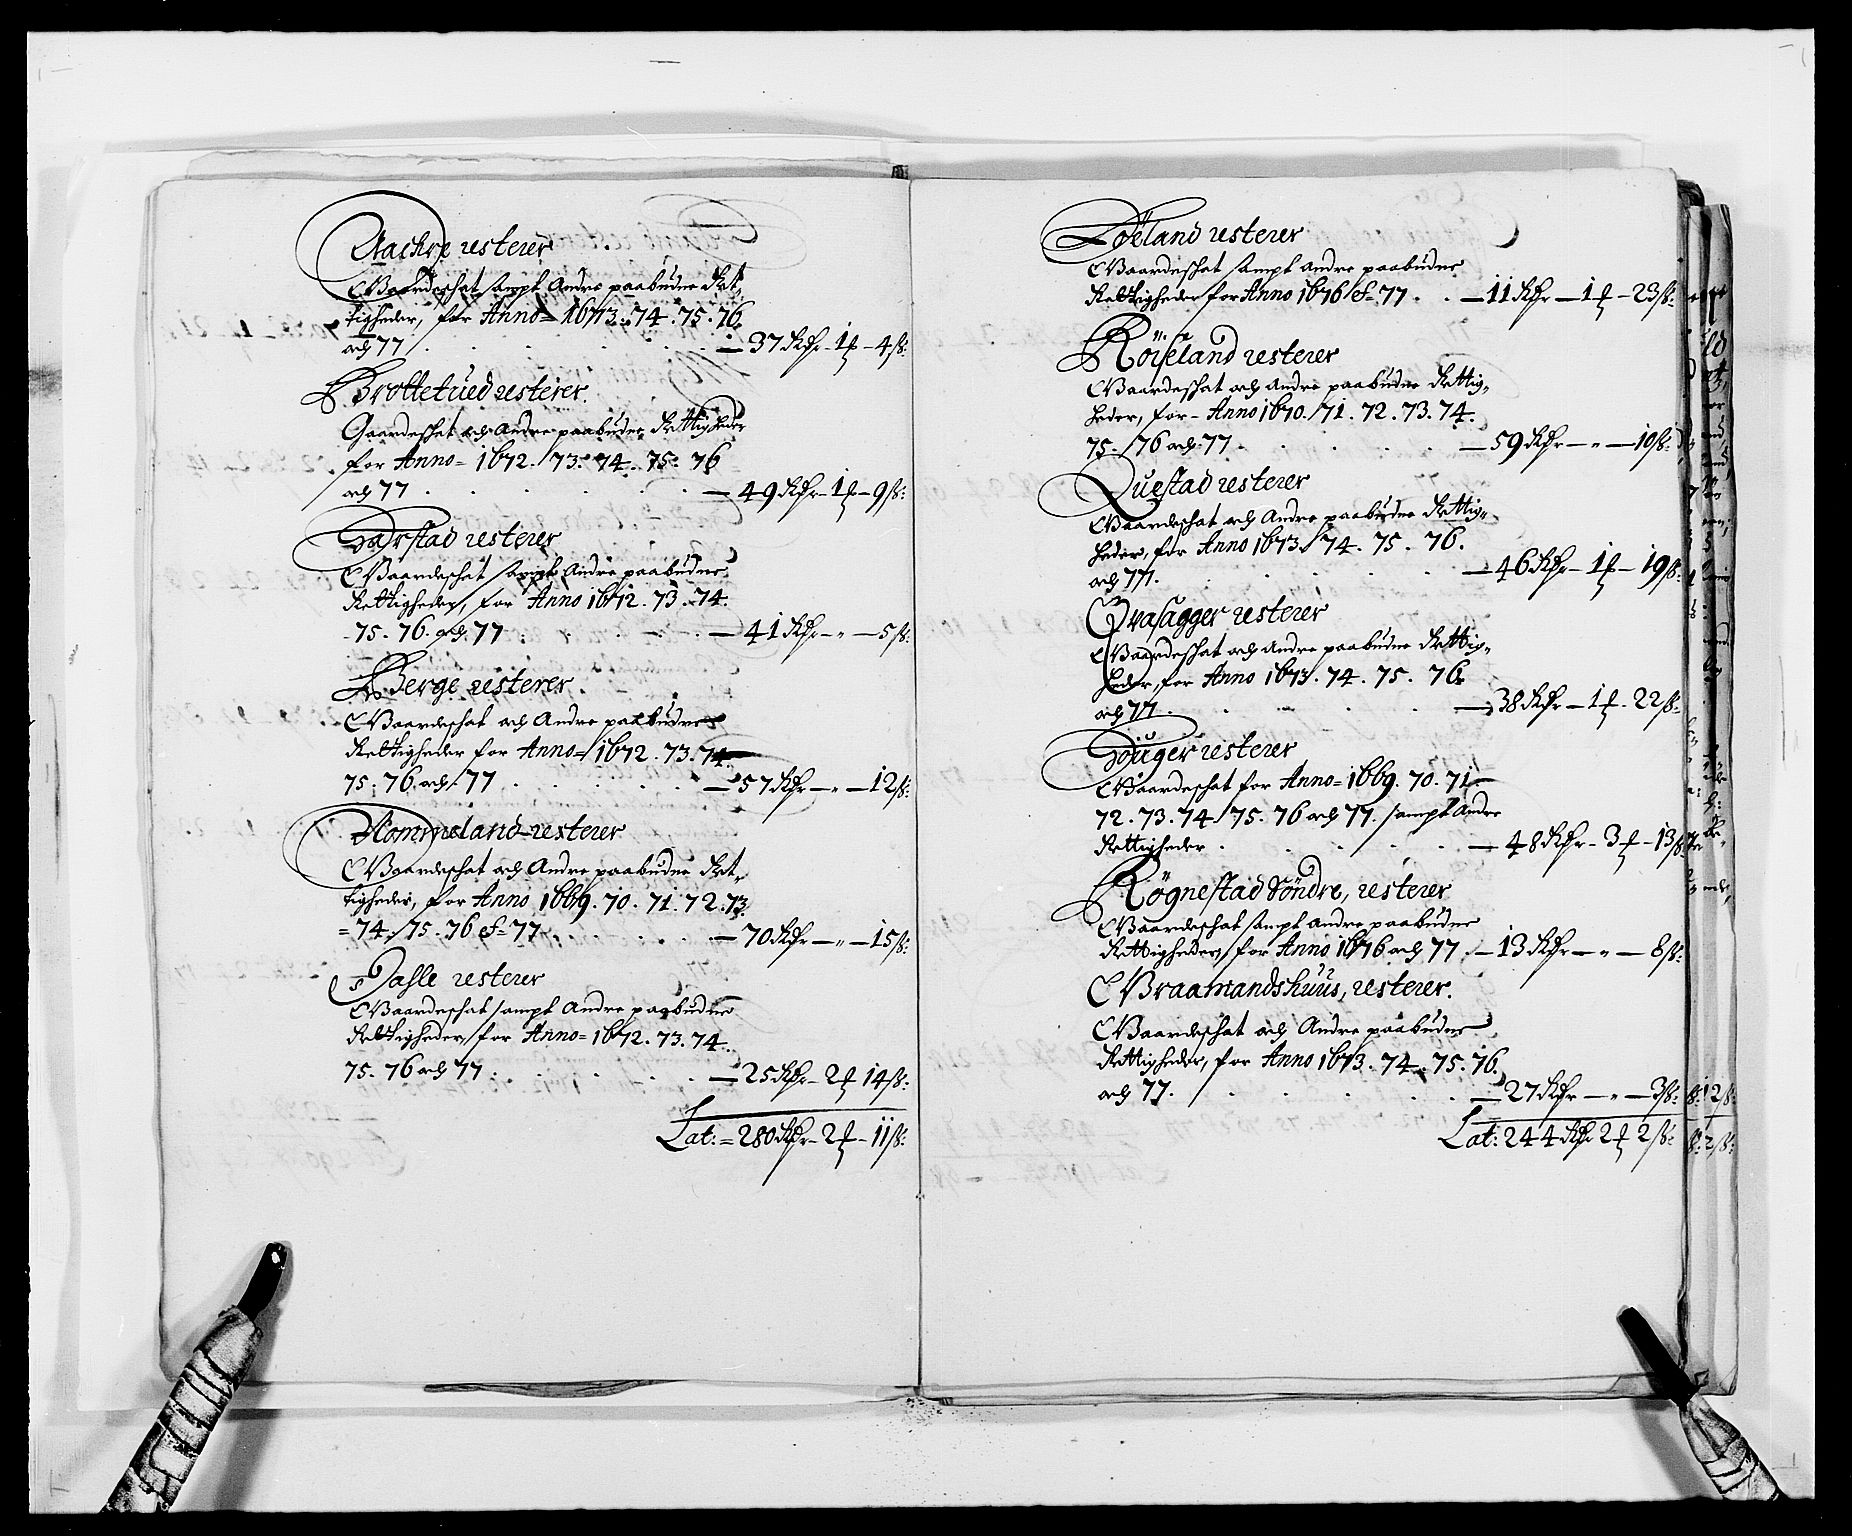 Aachre resterer
Gaardeschat sampt Andre paabudne Ret,
tigheder, for Anno= 1673. 74. 75. 76.
och 77 . . . . — 37 Rdr – 1 ƒ – 4 ß:
Brottetued resterer.
Gaardeschat och Andre paabudne Rettigheder
for Anno= 1672. 73. 74. 75. 76
och 77 . . . . — 49 Rdr – 1 ƒ – 9 ß:
Harstad resterer
Gaardeschat sampt Andre paabudne
Rettigheder, for Anno 1672. 73. 74.
75. 76. och 77 . . . — 41 Rdr – " – 5 ß:
Berge resterer.
Gaardeschat och Andre paabudne
Rettigheder for Anno= 1672. 73. 74.
75. 76. och 77 . . . — 57 Rdr – " – 12 ß:
Hommeland resterer
Gaardeschat och Andre paabudne Ret,
tigheder, for Anno 1669. 70. 71. 72. 73.
= 74. 75. 76 & 77 . . . — 70 Rdr – " – 15 ß:
Dasle resterer
Gaardeschat sampt Andre paabudne
Rettigheder for Anno= 1672. 73. 74.
75. 76 och 77 . . . — 25 Rdr – 2 ƒ 14 ß:
Lat: = 280 Rdr – 2 ƒ – 11 ß:
Loeland resterer
Gaardeschat sampt Andre paabudne
Rettigheder for Anno 1676 & 77 . . — 11 Rdr – 1 ƒ – 23 ß:
Röiseland resterer
Gaardeschat och Andre paabudne Rettig,,
heder, for – Anno 1670. 71. 72. 73. 74.
75. 76 och 77 . . . — 59 Rdr – " – 10 ß:
Questad resterer
Gaardeschat och Andre paabudne Rettig,,
heder, for Anno 1673. 74. 75. 76.
och 77. . . . — 46 Rdr – 1 ƒ – 19 ß:
Grasagger resterer
Gaardeschat och Andre paabudne Rettig,,
heder, for Anno 1673. 74. 75. 76.
och 77 . . . — 38 Rdr – 1 ƒ – 22 ß:
Houger resterer
Gaardeschat for Anno= 1669. 70. 71.
72. 73. 74. 75. 76 och 77. sampt Andre
Rettigheder . . . — 48 Rdr – 3 ƒ – 13 ß:
Rögnestad Söndre, resterer
Gaardeschat sampt Andre paabudne
Rettigheder, for Anno 1676 och 77 . — 13 Rdr – " – 8 ß:
Graamandshuus, resterer.
Gaardeschat och Andre paabudne
Rettigheder, for Anno 1673. 74. 75. 76.
och 77. . . . — 27 Rdr – " – 3 ß:
Lat: 244 Rdr 2 ƒ 2 ß: